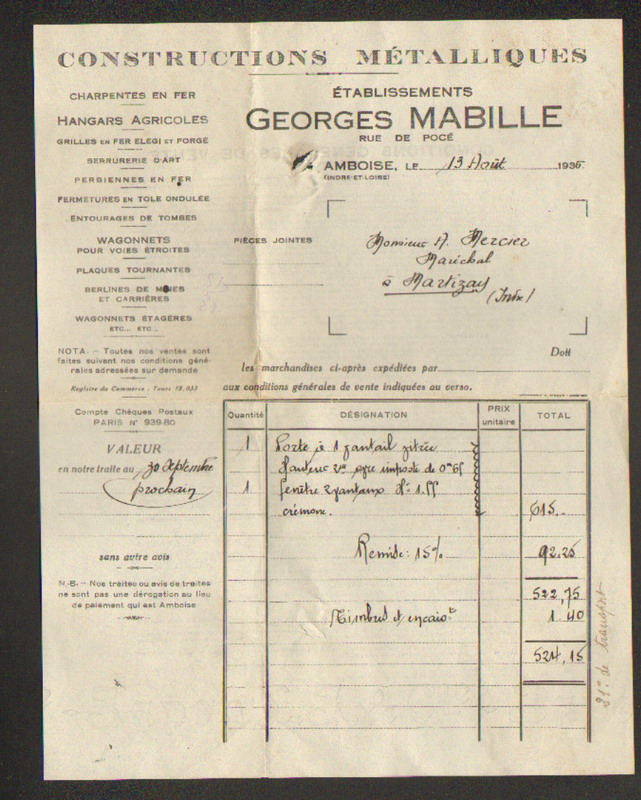 CONSTRUCTIONS MÉTALLIQUES
CHARPENTES EN FER
HANGARS AGRICOLES
GRILLES EN FER ELEGI ET FORGÉ
SERRURERIE D'ART
PERSIENNES EN FER
FERMETURES EN TOLE ONDULÉE
ENTOURAGES DE TOMBES
WAGONNETS
POUR VOIES ÉTROITES
PLAQUES TOURNANTES
BERLINES DE MINES
ET CARRIÈRES
WAGONNETS ÉTAGÈRES
ETC... ETC...
NOTA. - Toutes nos ventes sont
faites suivant nos conditions géné-
rales adressées sur demande
Registre du Commerce - Tours 12.033
Compte Chèques Postaux
PARIS N° 939-80
VALEUR
en notre traite au 30 Septembre
prochain
sans autre avis
N.-B. - Nos traites ou avis de traites
ne sont pas une dérogation au lieu
de paiement qui est Amboise
ÉTABLISSEMENTS
GEORGES MABILLE
RUE DE POCÉ
AMBOISE, LE 13 Août 1936
(INDRE-ET-LOIRE)
PIÈCES JOINTES
Monsieur A. Mercier
Maréchal
à Martizay
(Indre)
Doit
les marchandises ci-après expédiées par
aux conditions générales de vente indiquées au verso.
Quantité DÉSIGNATION PRIX unitaire TOTAL
1 Porte à 1 vantail vitrée
Hauteur 2m imposte de 0m65
1 fenêtre 2 vantaux Hr 1.55
crémone. 615..
Remise: 15% 92.25
522,75
Timbres et encaist 1.40
524,15
de transport